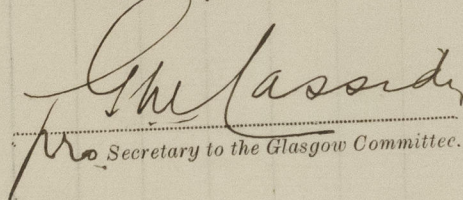 Cassidy
pro Secretary to the Glasgow Committee.